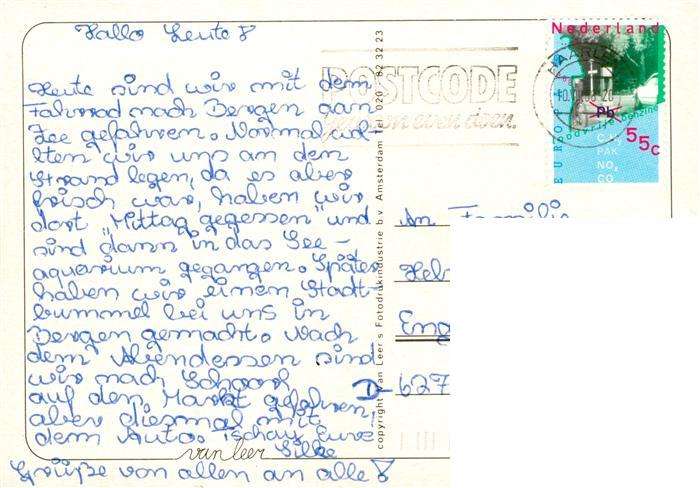 Hallo Leute!
Heute sind wir mit dem
Fahrrad nach Bergen aan
Zee gefahren. Normal wol-
lten wir uns an dem
Strand legen, da es aber
frisch war, haben wir
dort "Mittag gegessen" und
sind dann in das See-
aquarium gegangen. Später
haben wir einen Stadt-
bummel bei uns in
Bergen gemacht. Nach
dem Abendessen sind
wir nach Schoorl
auf dem Markt gefahren,
aber diesmal mit
dem Auto. Tschau, Eure
Silke
Grüße von allen an alle!
van leer
copyright van Leer's Fotodrukindustrie b.v. Amsterdam Tel. 020 82 32 23
POSTCODE
gewoon even doen.
Nederland
EUROPA
Pb
loodvrije benzine
55c
PAK
NO
CO
An Familie
D-627